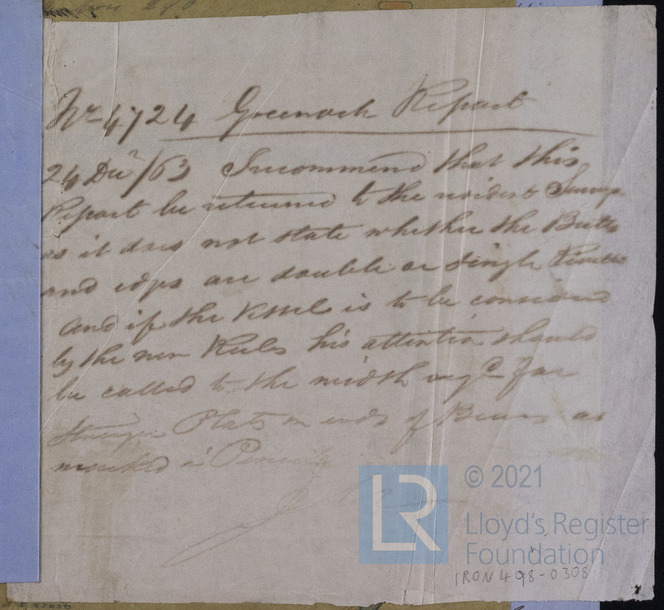 No 4724 Greenock Report
24 Decr /63 I recommend that this
Report be returned to the resident Surveyor
as it does not state whether the Butts
and edges are double or single Riveted
and if the Vessel is to be considered
by the new Rules his attention should
be called to the width reqd for
Stringer Plate on ends of Beams as
marked in Pencil
LR
© 2021
Lloyd's Register
Foundation
IRON 498-0308